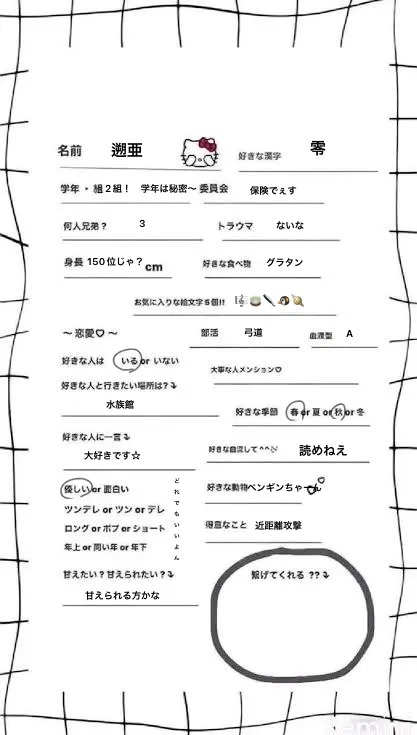 名前 遡亜 好きな漢字 零
学年・組 2組！ 学年は秘密〜 委員会 保険でぇす
何人兄弟？ 3 トラウマ ないな
身長 150位じゃ？cm 好きな食べ物 グラタン
お気に入りな絵文字5個!!
〜 恋愛♡ 〜 部活 弓道 血液型 A
好きな人は いる or いない 大事な人メンション♡
好きな人と行きたい場所は？
水族館 好きな季節 春 or 夏 or 秋 or 冬
好きな人に一言
大好きです☆ 読めねえ
優しい or 面白い 好きな動物 ペンギンちゃーん
ツンデレ or ツン or デレ 得意なこと 近距離攻撃
ロング or ボブ or ショート
年上 or 同い年 or 年下
どれでもいいよん
甘えたい？甘えられたい？ 繋げてくれる ??
甘えられる方かな